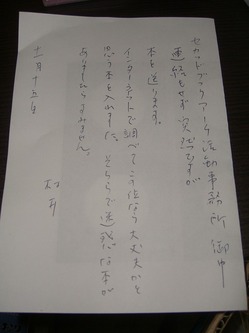 セカンドブックアーチ活動事務所 御中
連絡もせず突然ですが
本を送ります。
インターネットで調べてこの位なら大丈夫かと
思う本を入れました。そちらで迷惑な本が
ありましたらすみません。
十一月十五日